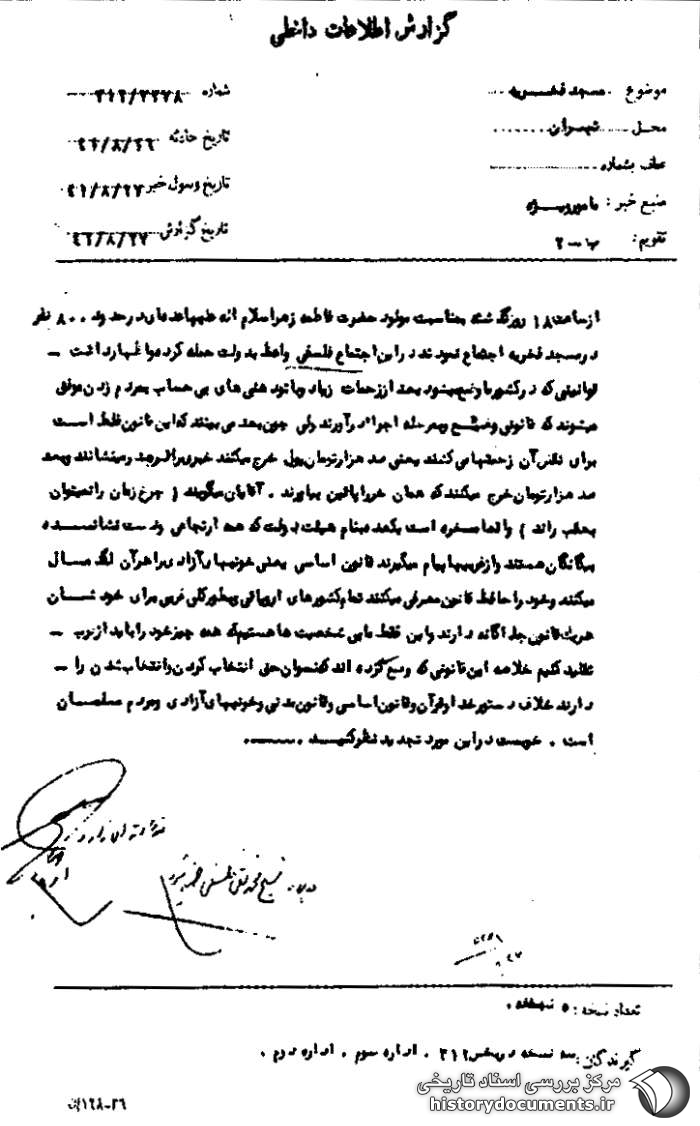 گزارش اطلاعات داخلی
موضوع مسجد فخریه
شماره ۳۱۲/۲۲۷۸
محل تهران
تاریخ حادثه ۴۱/۸/۲۶
عطف بشماره
تاریخ وصول خبر ۴۱/۸/۲۷
منبع خبر : مامور ویژه
تاریخ گزارش ۴۱/۸/۲۷
تقویم : ب - ۲
از ساعت ۱۸ روز گذشته بمناسبت مولود حضرت فاطمه زهرا سلام اله علیها عده‌ای در حدود ۸۰۰ نفر
در مسجد فخریه اجتماع نمودند در این اجتماع فلسفی واعظ بدولت حمله کرده و اظهار داشت -
قوانینی که در کشور ما وضع میشود بعد از زحمات زیاد و با تو دهنی های بی حساب بمردم زدن موفق
میشوند که قانونی وضع و بمرحله اجرا درآورند ولی چون بعد می بینند که این قانون غلط است
برای نقض آن زحمتها می کشند یعنی صد هزار تومان پول خرج میکنند خبری را میکشانند و بعد
صد هزار تومان خرج میکنند که همان خر را پائین بیاورند . آقایان میگویند ( چرخ زمان را نمیتوان
بعقب راند ) واقعا مسخره است یکعده بنام هیئت دولت که همه ارتجاعی و دست نشانده
بیگانگان هستند و از غربیها پیام میگیرند قانون اساسی یعنی خونبهای آزادی را هر آن لگد مال
میکنند و خود را حافظ قانون معرفی میکنند تمام کشورهای اروپائی و بطور کلی غربی برای خودشان
هریک قانون جداگانه دارند و این فقط ما بی شخصیت ها هستیم که همه چیز خود را باید از غرب -
تقلید کنیم خلاصه این قانونی که وضع کرده اند که نسوان حق انتخاب کردن و انتخاب شدن را -
دارند خلاف دستور خدا و قرآن و قانون اساسی و قانون مدنی و خونبهای آزادی و مردم مسلمان
است . خوبست در این مورد تجدید نظر کنید .
شیخ محمد تقی فلسفی
۸/۲۷
تعداد نسخه : ۵ نسخه .
گیرندگان : سه نسخه در بخش ۳۱۲ ، اداره سوم ، اداره دوم .
مرکز بررسی اسناد تاریخی
historydocuments.ir